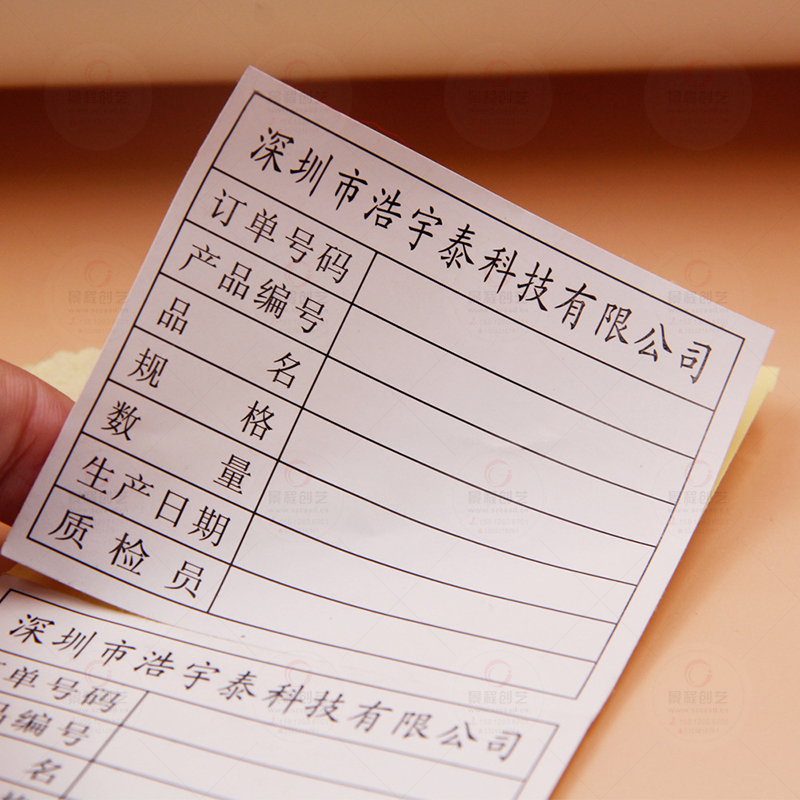 深圳市浩宇泰科技有限公司
订单号码
产品编号
品 名
规 格
数 量
生产日期
质检员
深圳市浩宇泰科技有限公司
单号码
品编号
名
格
景程创艺